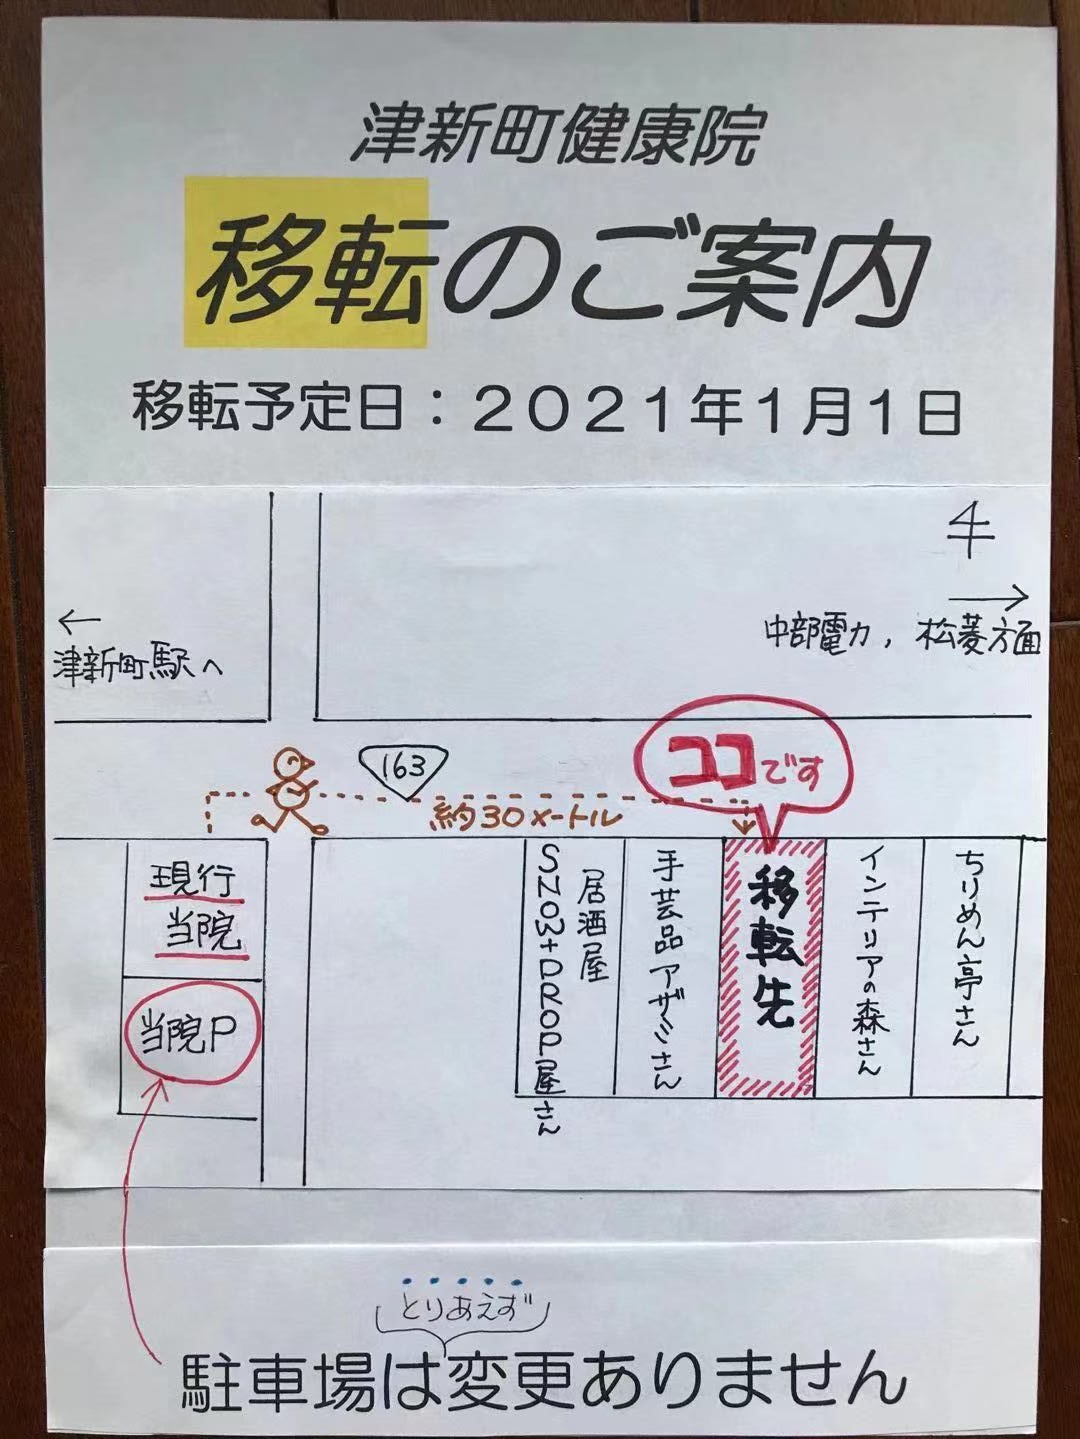 津新町健康院
移転のご案内
移転予定日：２０２１年１月１日
←
津新町駅へ
→
中部電力, 松菱方面
163
ココです
約30メートル
現行
当院
当院P
居酒屋
SNO3+DROP屋さん
手芸品アザミさん
移転先
インテリアの森さん
ちりめん亭さん
とりあえず
駐車場は変更ありません